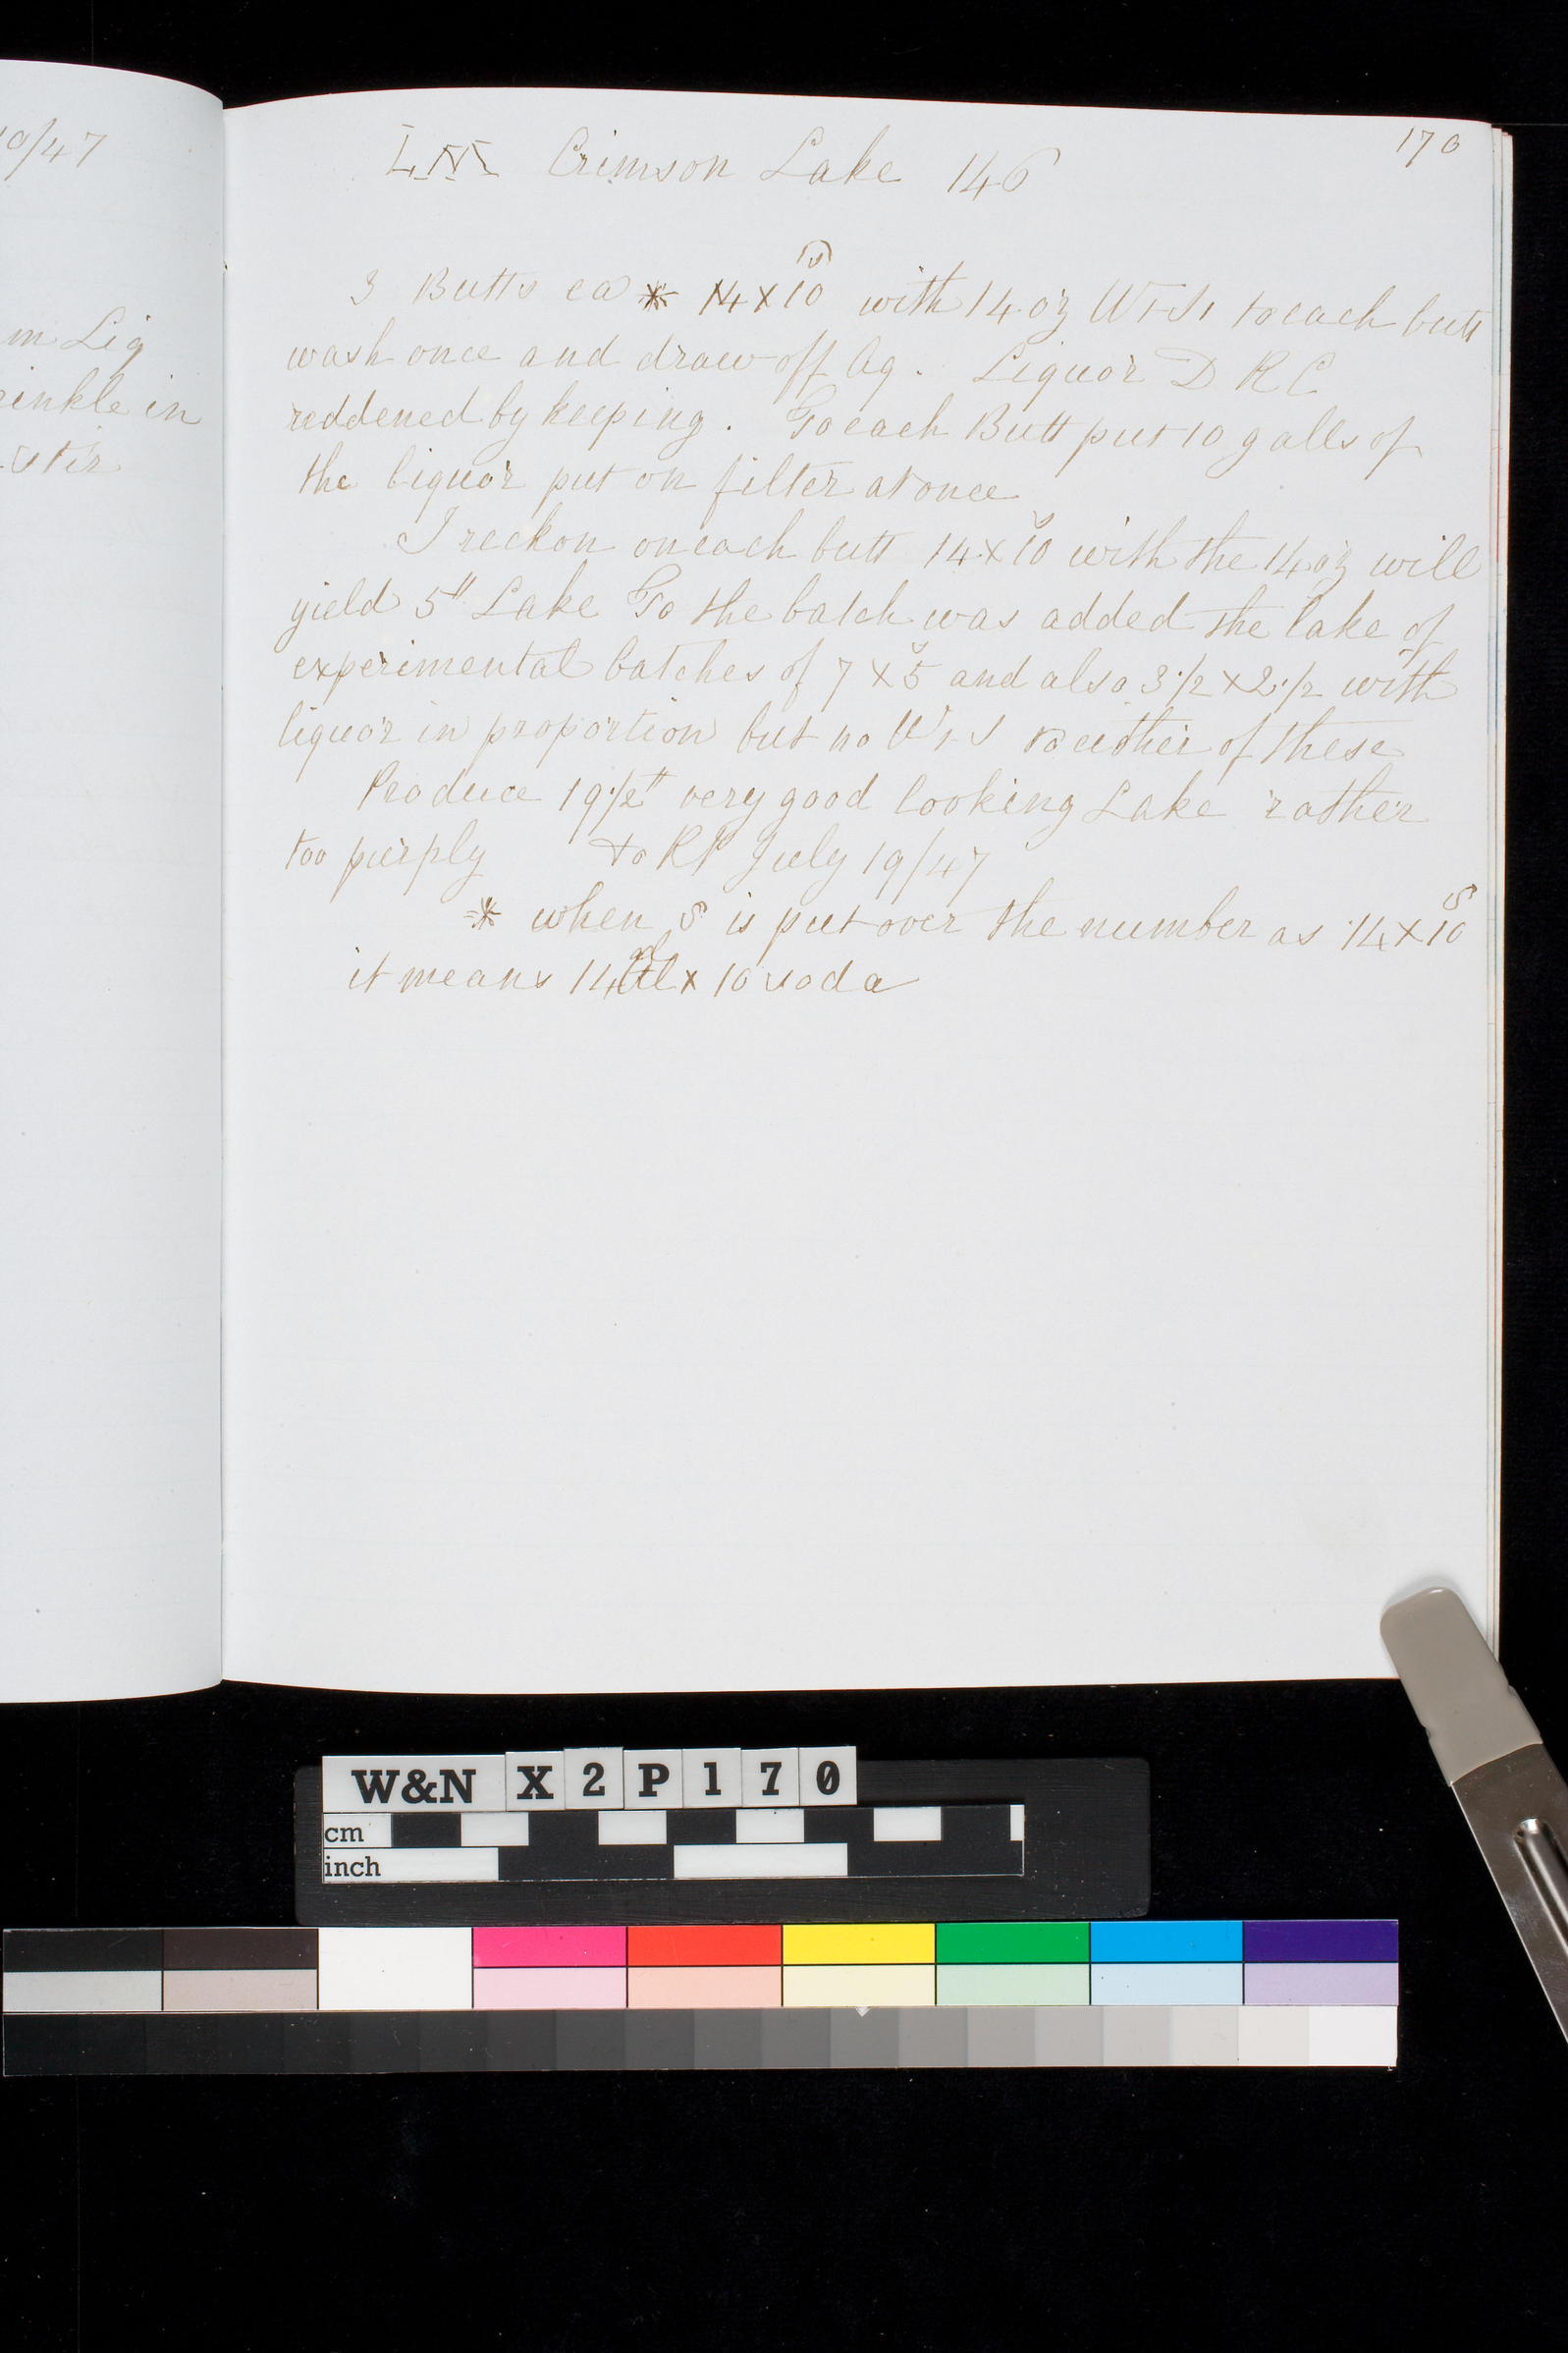 10/47
m Liq
rinkle in
stir
170
LNS Crimson Lake 146
3 Butts ea * 14 x 10 (s) with 14 oz W+S, to each butt
wash once and draw off Aq. Liquor D R C
reddened by keeping. To each Butt put 10 galls of
the liquor put on filter at once
I reckon on each butt 14 x 10 s with the 14 oz will
yield 5" Lake To the batch was added the lake of
experimental batches of 7 x 5 s and also 3 1/2 x 2 1/2 with
liquor in proportion but no W+S to either of these
Produce 19 1/2 very good looking Lake rather
too purply to RP July 19/47
* when S is put over the number as 14 x 10 S
it means 14 al x 10 soda
W&N X 2 P 1 7 0
cm
inch